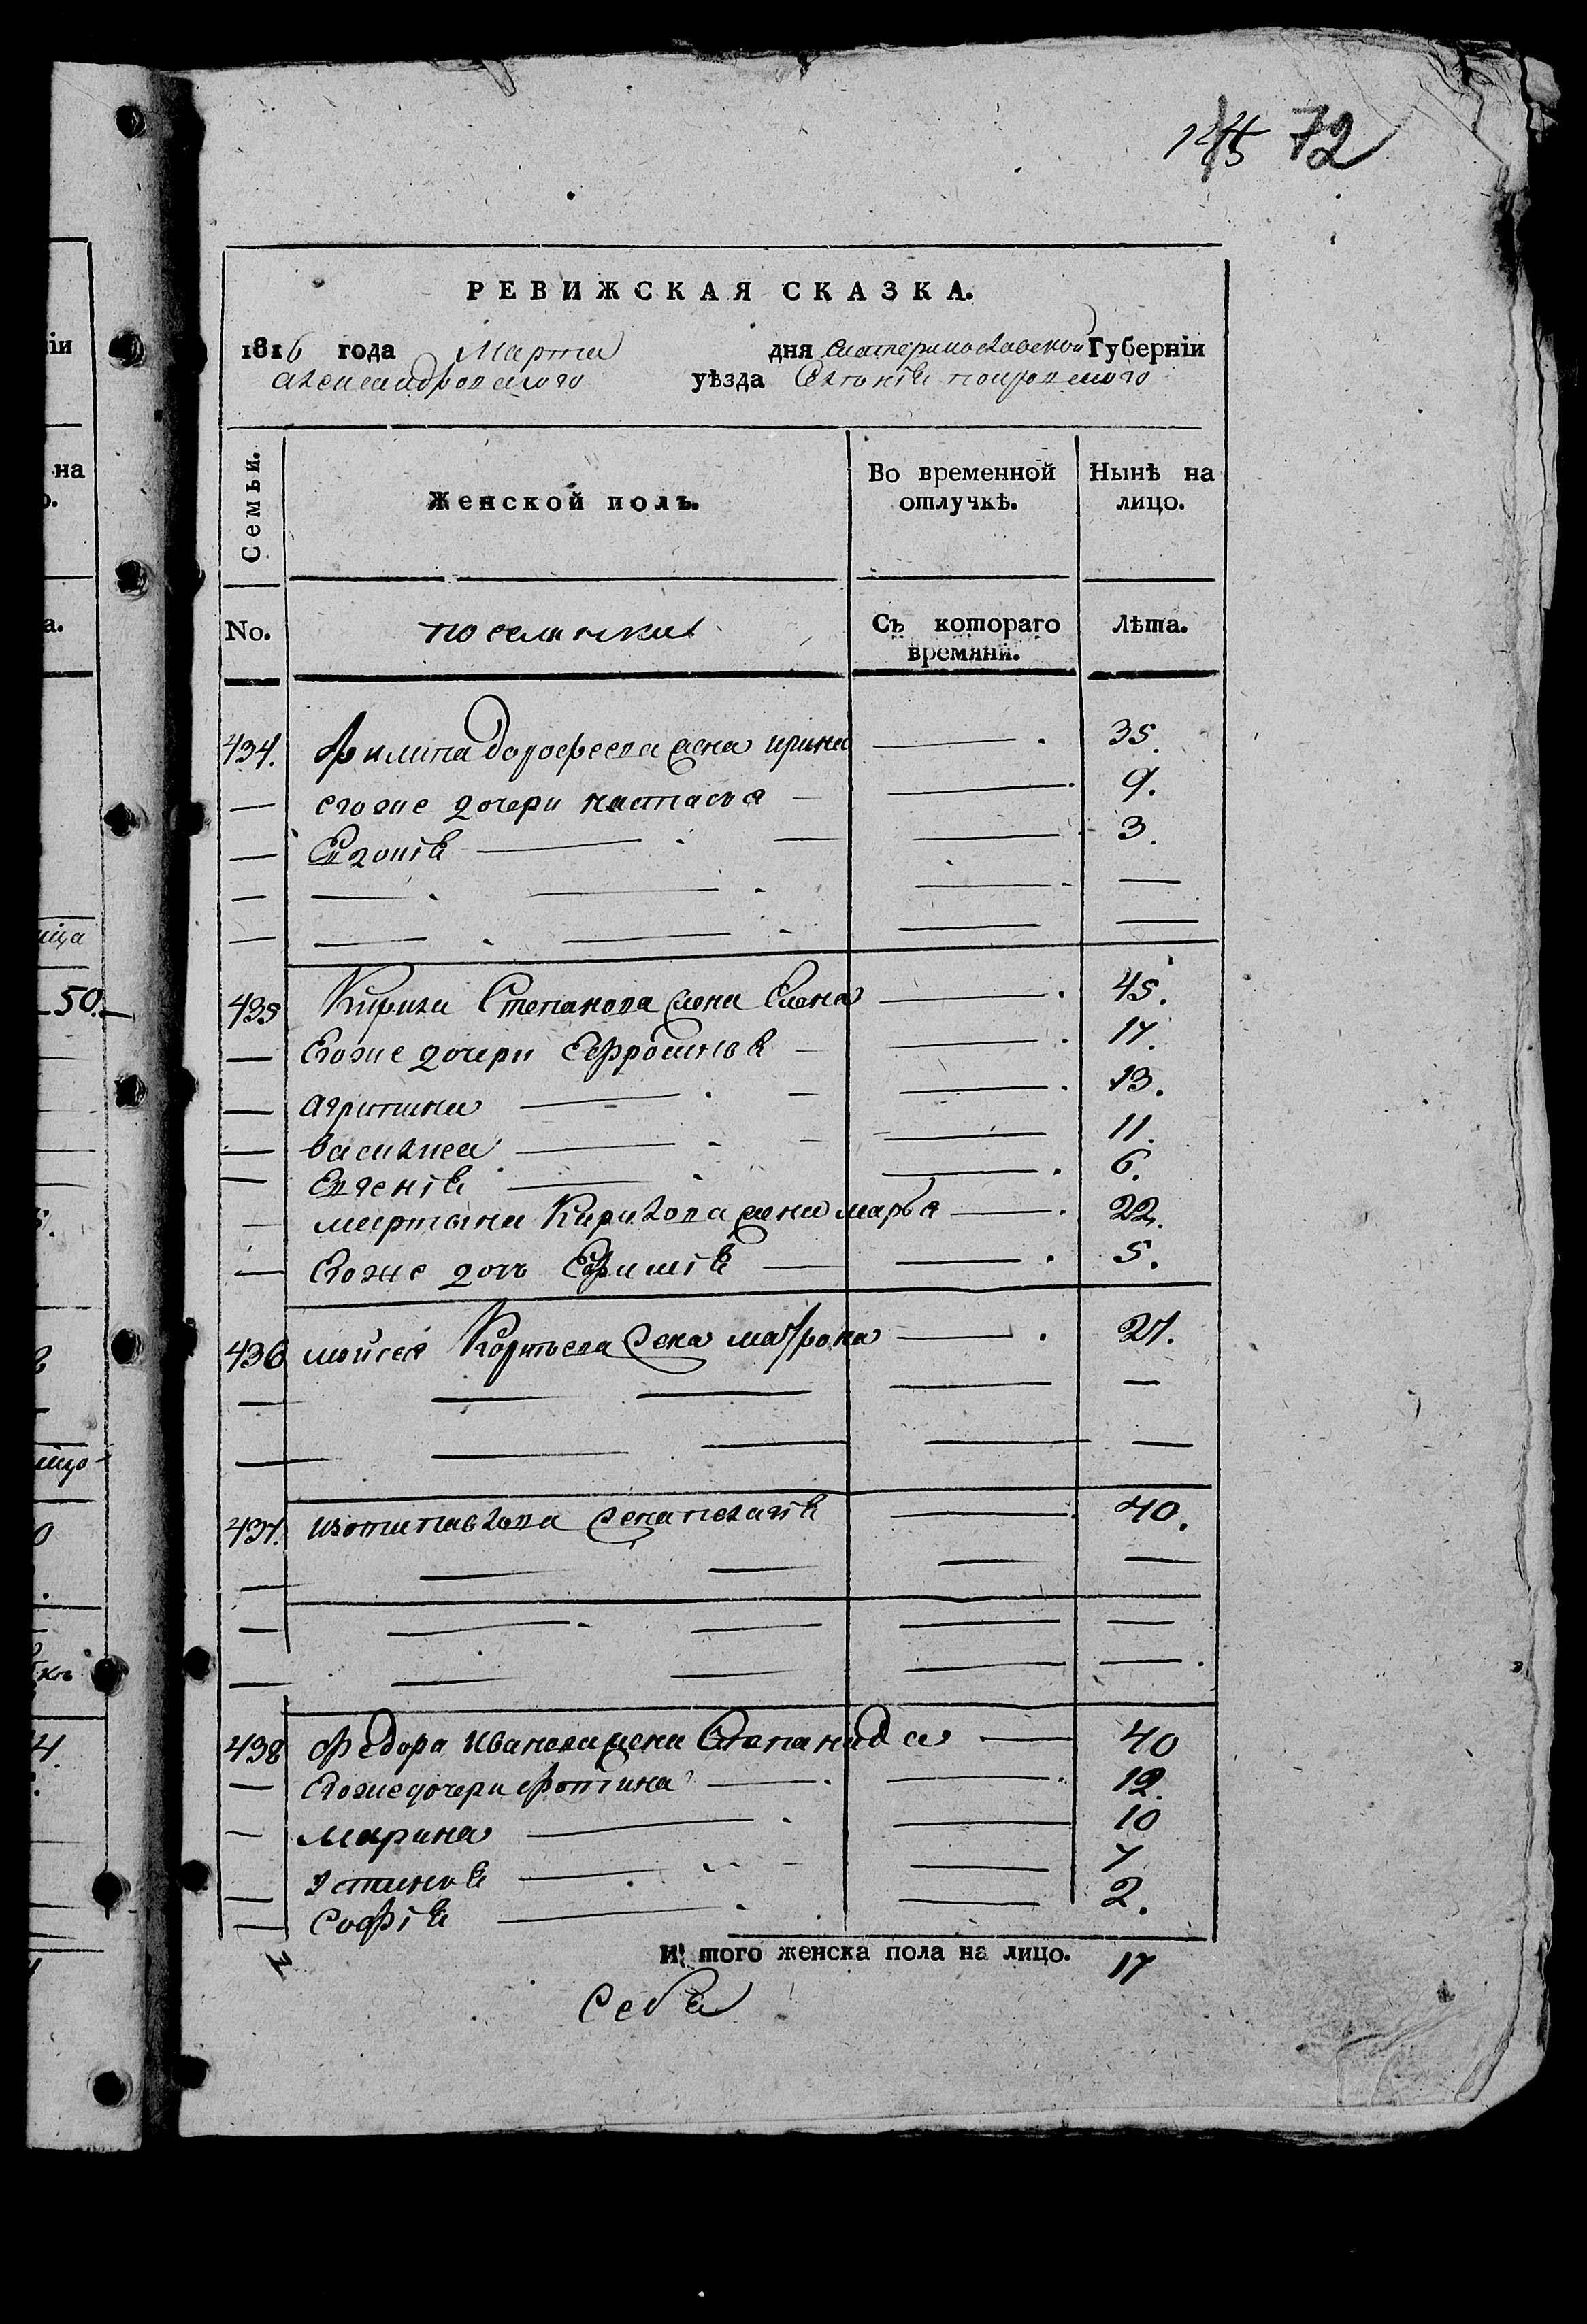 72
РЕВИЖСКАЯ СКАЗКА.
1816 года Марта дня Екатеринославской Губерніи
александровского уѣзда Селенія покровского
Семьи. Женской полъ. Во временной отлучкѣ. Нынѣ на лицо.
No. поселянки Съ котораго времяни. Лѣта.
434. Филипа дорофеева жена ирина 35.
— егоже дочери настасья 9.
— Евдокія 3.
435 Кирила Степанова жена Елена 45.
— Егоже дочери Ефросинья 17.
— агрипина 13.
— василиса 11.
— Евгенія 6.
— мартина Кирилова жена марья 22.
— Егоже дочь Ефимія 5.
436 мойсея Карпьева жена матрона 27.
437. изота павлова жена пелагія 40.
438 Федора иванова жена Степанида 40
— Егоже дочери Фотина 12.
— Марина 10
— Устинья 7
— Софія 2.
И того женска пола на лицо. 17